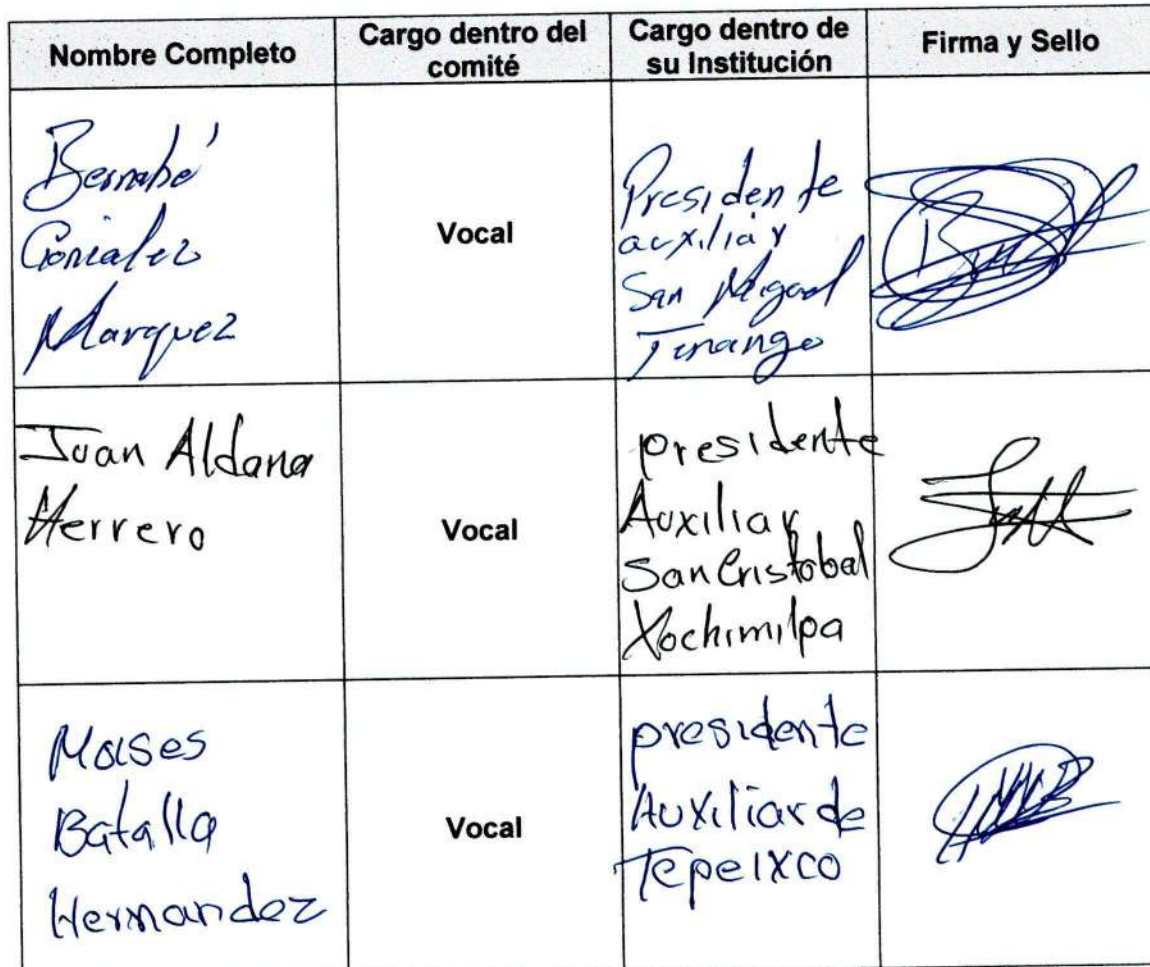 Nombre Completo
Cargo dentro del
comité
Cargo dentro de
su Institución
Firma y Sello
Bernabé
Gonzalez
Marquez
Vocal
Presidente
auxiliar
San Miguel
Tenango
Juan Aldana
Herrero
Vocal
presidente
Auxiliar
San Cristobal
Xochimilpa
Moises
Batalla
Hernandez
Vocal
presidente
Auxiliar de
Tepeixco